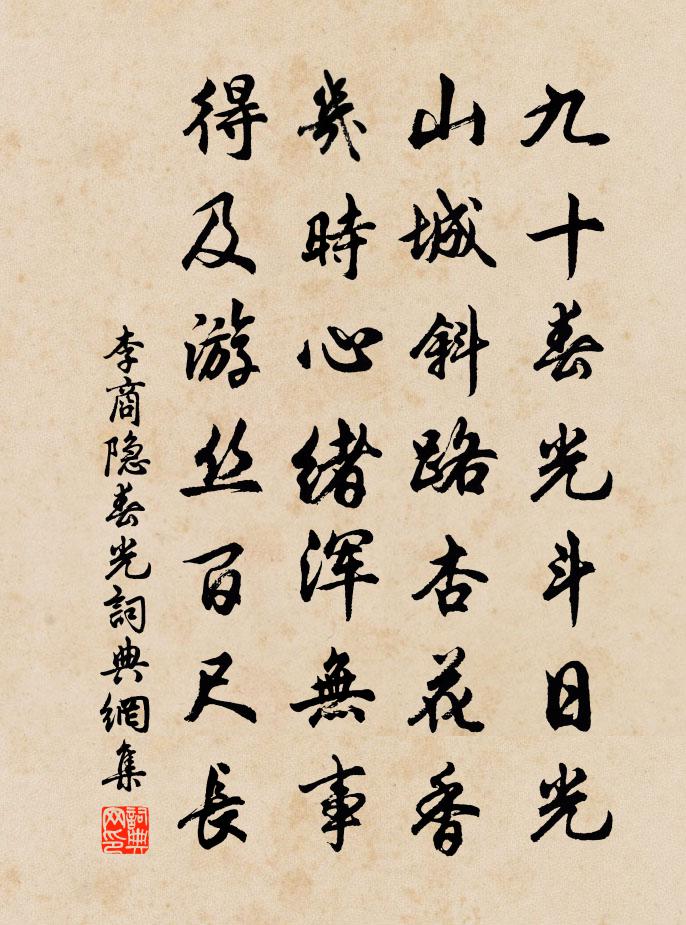 九十春光斗日光
山城斜路杏花香
幾時心緒渾無事
得及游丝百尺長
李商隐春光詞典網集
詞典网印